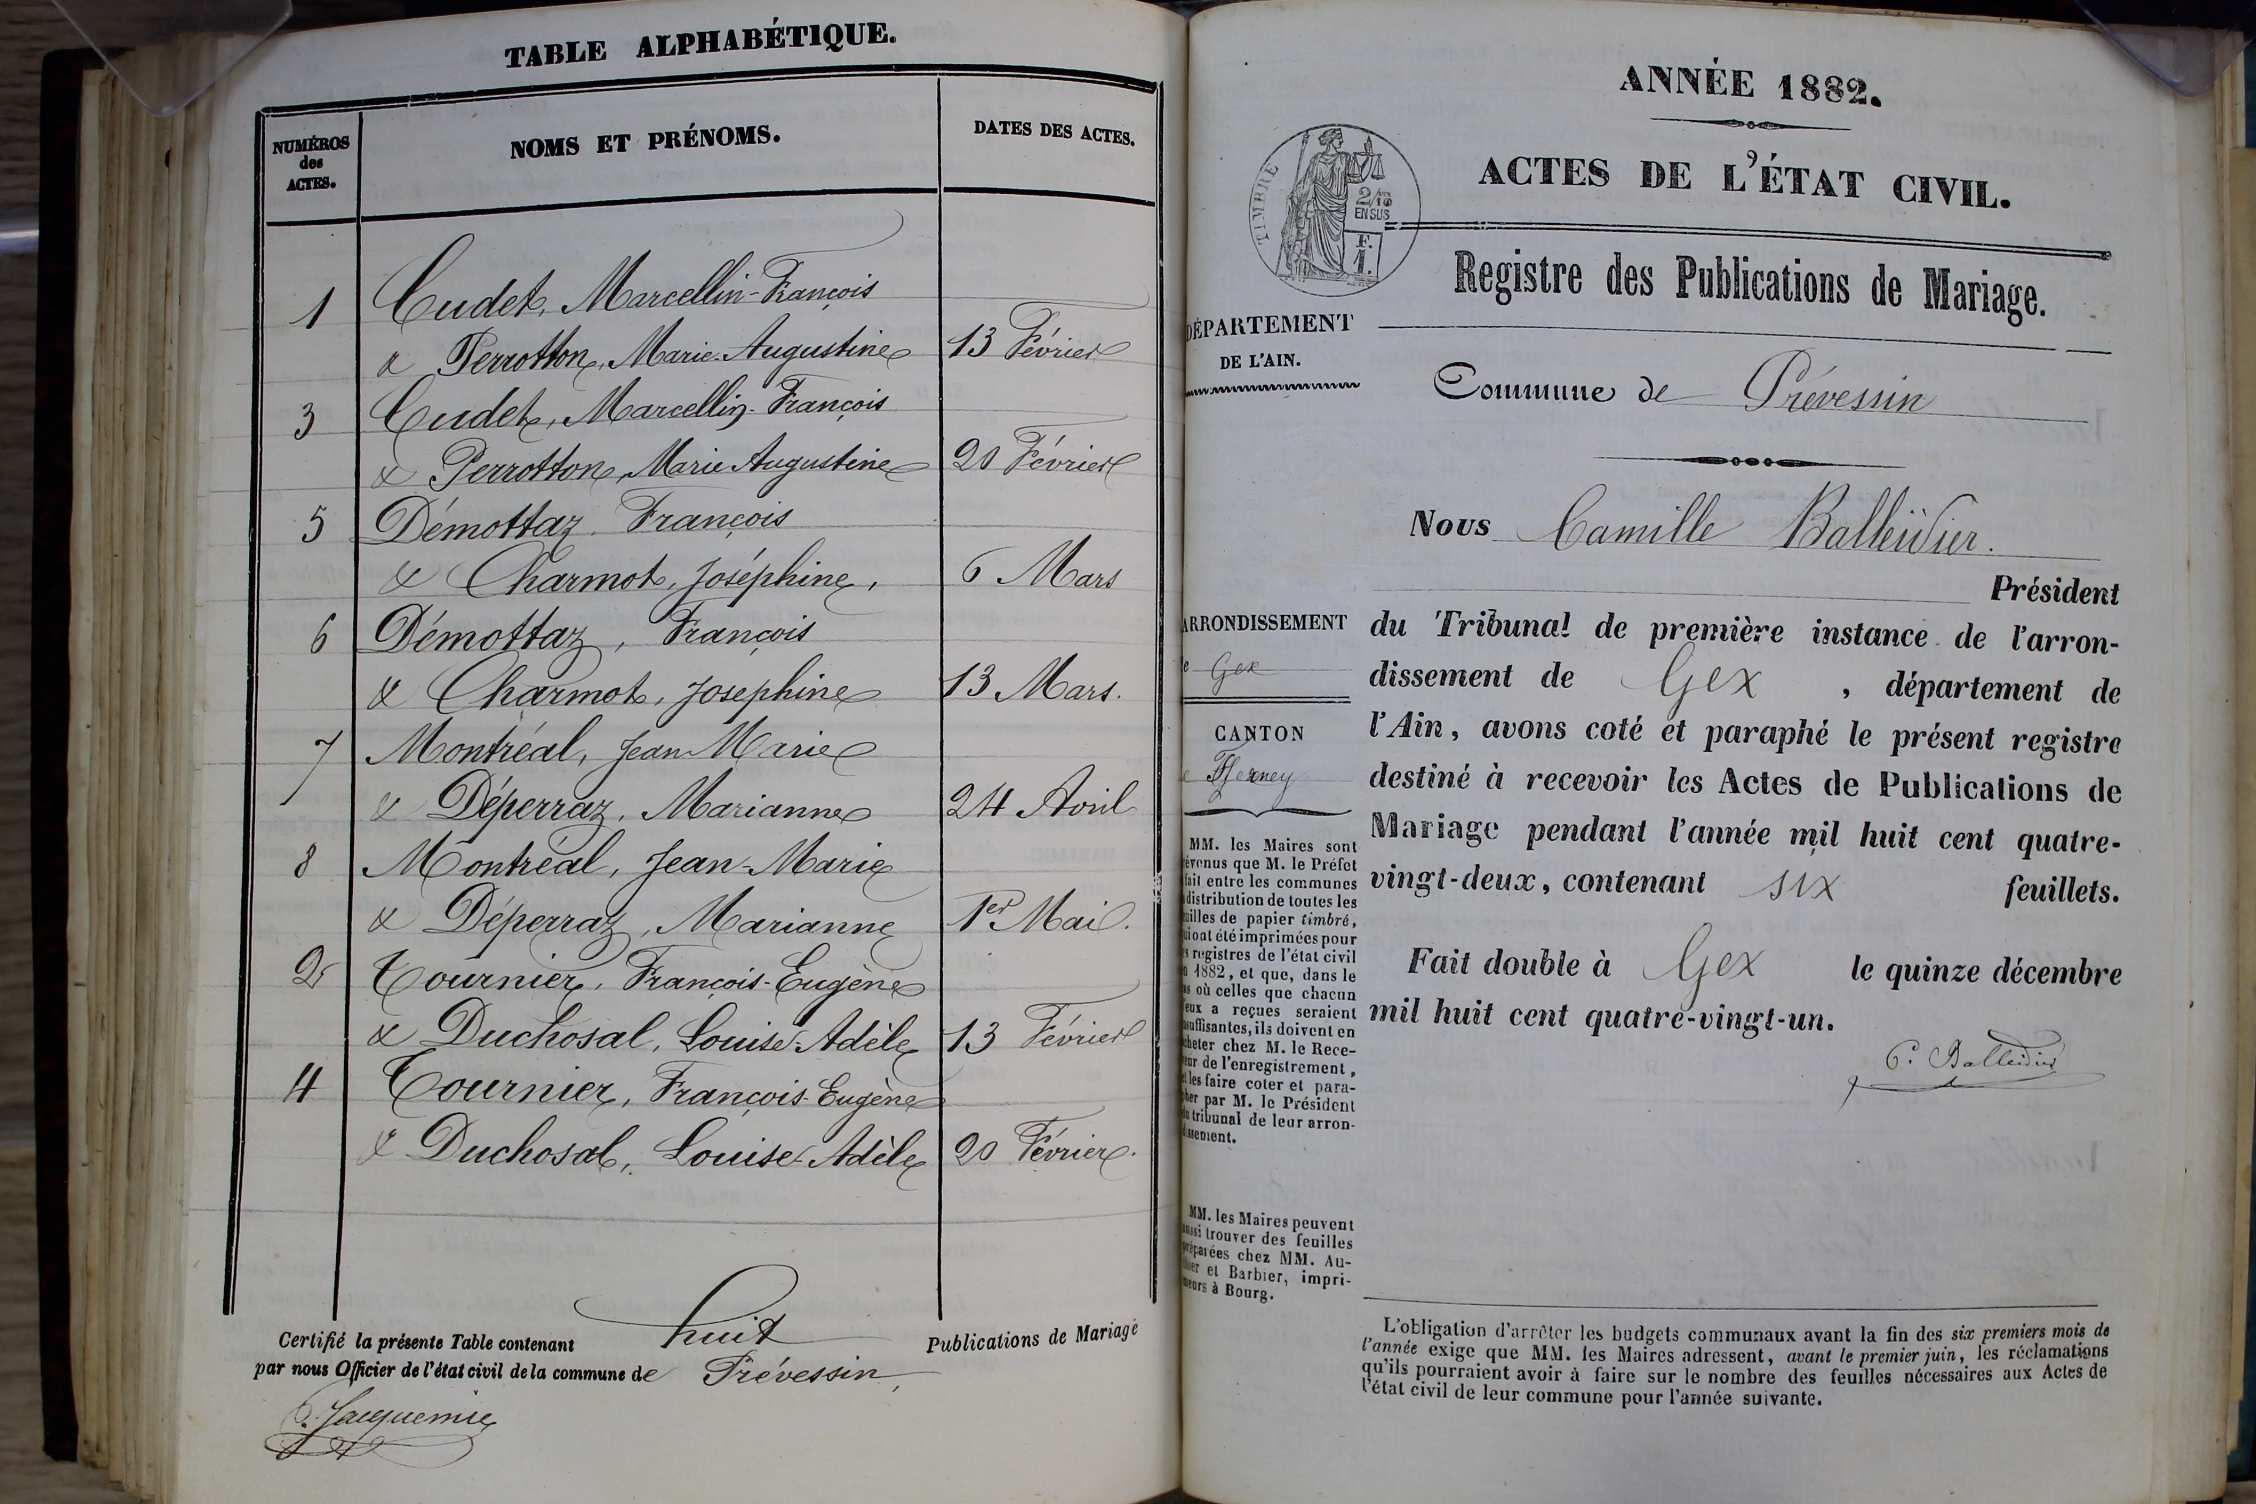 TABLE ALPHABÉTIQUE.
NUMÉROS
des
ACTES.
NOMS ET PRÉNOMS.
DATES DES ACTES.
1 Cudet, Marcellin-François
& Perrotton, Marie-Augustine 13 Février
3 Cudet, Marcellin-François
& Perrotton, Marie Augustine 20 Février
5 Démottaz, François
& Charmot, Joséphine, 6 Mars
6 Démottaz, François
& Charmot, Joséphine 13 Mars.
7 Montréal, Jean Marie
& Déperraz, Marianne 24 Avril
8 Montréal, Jean-Marie
& Déperraz, Marianne 1er Mai.
2 Tournier, François-Eugène
& Duchosal, Louise-Adèle 13 Février
4 Tournier, François-Eugène
& Duchosal, Louise-Adèle 20 Février.
Certifié la présente Table contenant huit Publications de Mariage
par nous Officier de l'état civil de la commune de Prévessin,
Jacquemier
ANNÉE 1882.
ACTES DE L'ÉTAT CIVIL.
TIMBRE
2/10
EN SUS
F.
1.
Registre des Publications de Mariage.
DÉPARTEMENT
DE L'AIN.
Commune de Prévessin
Nous Camille Balleidier.
Président
ARRONDISSEMENT
de Gex
CANTON
Ferney
du Tribunal de première instance de l'arron-
dissement de Gex, département de
l'Ain, avons coté et paraphé le présent registre
destiné à recevoir les Actes de Publications de
Mariage pendant l'année mil huit cent quatre-
vingt-deux, contenant six feuillets.
Fait double à Gex le quinze décembre
mil huit cent quatre-vingt-un.
C. Balleidier
MM. les Maires sont
évenus que M. le Préfet
fait entre les communes
distribution de toutes les
uilles de papier timbré,
ui ont été imprimées pour
s registres de l'état civil
n 1882, et que, dans le
as où celles que chacun
eux a reçues seraient
suffisantes, ils doivent en
cheter chez M. le Rece-
eur de l'enregistrement,
t les faire coter et para-
her par M. le Président
u tribunal de leur arron-
issement.
MM. les Maires peuvent
ussi trouver des feuilles
réparées chez MM. Au-
hier et Barbier, impri-
eurs à Bourg.
L'obligation d'arrêter les budgets communaux avant la fin des six premiers mois de
l'année exige que MM. les Maires adressent, avant le premier juin, les réclamations
qu'ils pourraient avoir à faire sur le nombre des feuilles nécessaires aux Actes de
l'état civil de leur commune pour l'année suivante.